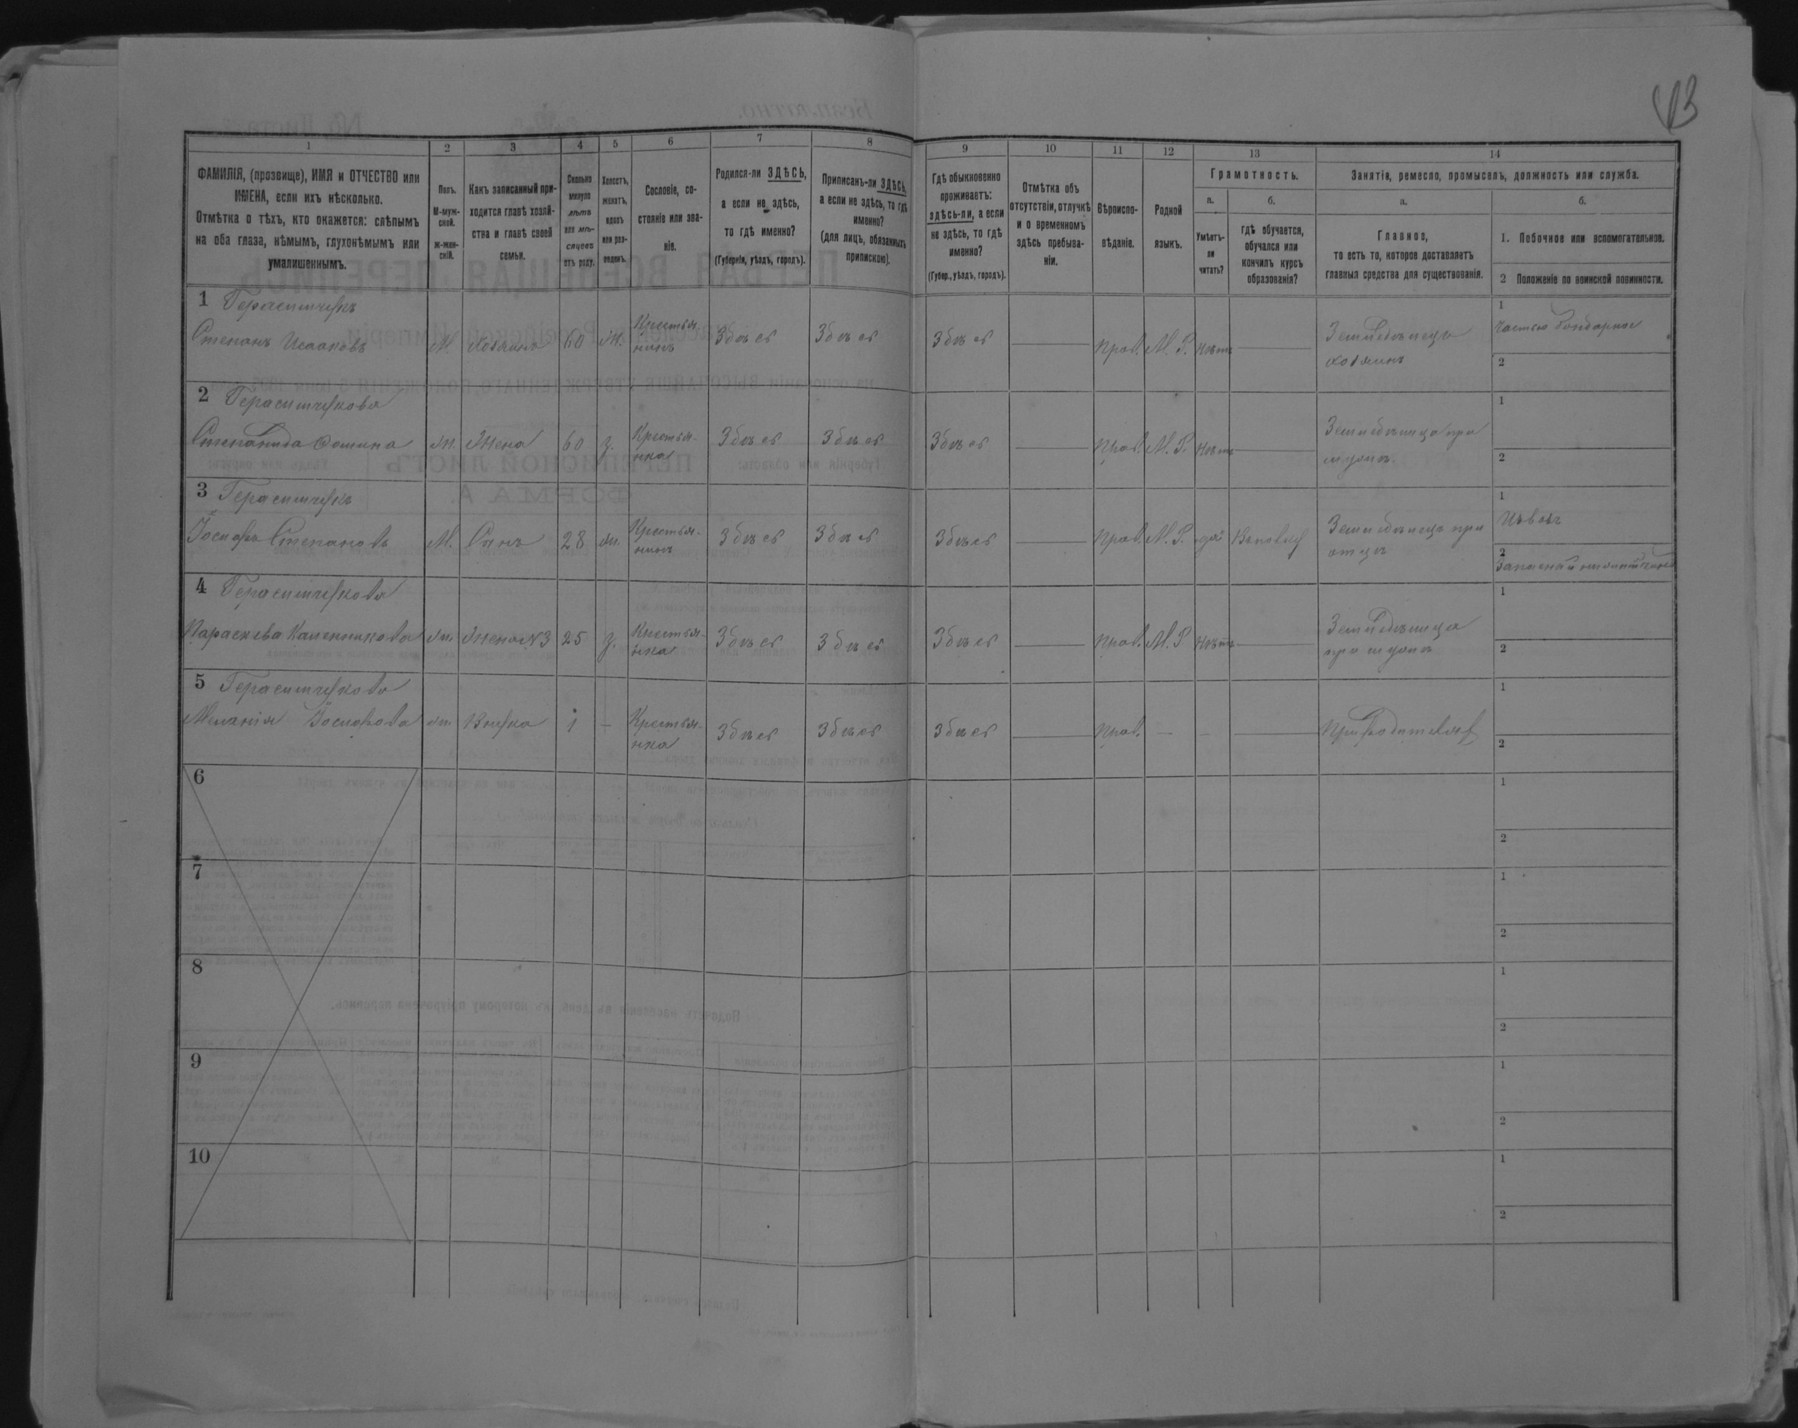 43
1
2
3
4
5
6
7
8
9
10
11
12
13
14
ФАМИЛІЯ, (прозвище), ИМЯ и ОТЧЕСТВО или
ИМЕНА, если ихъ нѣсколько.
Отмѣтка о тѣхъ, кто окажется: слѣпымъ
на оба глаза, нѣмымъ, глухонѣмымъ или
умалишеннымъ.
Полъ.
М-муж-
ской.
ж-жен-
скій.
Какъ записанный при-
ходится главѣ хозяй-
ства и главѣ своей
семьи.
Сколько
минуло
лѣтъ
или мѣ-
сяцевъ
отъ роду.
Холостъ,
женатъ,
вдовъ
или раз-
веденъ.
Сословіе, со-
стояніе или зва-
ніе.
Родился-ли ЗДѢСЬ,
а если не здѣсь,
то гдѣ именно?
(Губернія, уѣздъ, городъ).
Приписанъ-ли ЗДѢСЬ,
а если не здѣсь, то гдѣ
именно?
(для лицъ, обязанныхъ
припискою).
Гдѣ обыкновенно
проживаетъ:
здѣсь-ли, а если
не здѣсь, то гдѣ
именно?
(Губер., уѣздъ, городъ).
Отмѣтка объ
отсутствіи, отлучкѣ
и о временномъ
здѣсь пребыва-
ніи.
Вѣроиспо-
вѣданіе.
Родной
языкъ.
Грамотность.
а.
Умѣетъ-
ли
читать?
б.
Гдѣ обучается,
обучался или
кончилъ курсъ
образованія?
Занятія, ремесло, промыселъ, должность или служба.
а.
Главное,
то есть то, которое доставляетъ
главныя средства для существованія.
б.
1. Побочное или вспомогательное.
2 Положеніе по воинской повинности.
1 Герасимчукъ
Степанъ Исааковъ
М.
Хозяинъ
60
М.
Крестья-
нинъ
Здѣсь
Здѣсь
Здѣсь
Прав.
М. Р.
Нѣтъ
Земледѣлецъ
хозяинъ
1
частью бондарное
2
2 Герасимчукова
Степанида Фомина
Жена
60
З.
Крестья-
нка
Здѣсь
Здѣсь
Здѣсь
Прав.
М. Р.
Нѣтъ
Земледѣлица при
мужѣ
1
2
3 Герасимчукъ
Іосифъ Степановъ
М.
Сынъ
28
Крестья-
нинъ
Здѣсь
Здѣсь
Здѣсь
Прав.
М. Р.
да
Земледѣлецъ при
отцѣ
1
Извозъ
2
4 Герасимчукова
Параскева
Жена №3
25
З.
Крестья-
нка
Здѣсь
Здѣсь
Здѣсь
Прав.
М. Р.
Нѣтъ
Земледѣлица
при мужѣ
1
2
5 Герасимчукова
Меланія Іосифова
Внучка
1
Крестья-
нка
Здѣсь
Здѣсь
Здѣсь
Прав.
При родителях
1
2
6
1
2
7
1
2
8
1
2
9
1
2
10
1
2